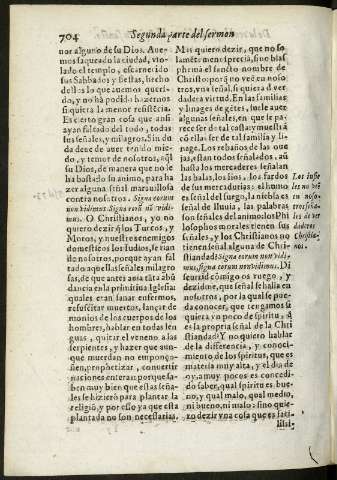 704
Segunda parte del sermon
nor alguno de su Dios. Aue-
mos saqueado la ciudad, vio-
lado el templo, escarnecido
sus Sabbados y fiestas, hecho
dellos lo que auemos queri-
do, y no há podido hazernos
si quiera la menor resistẽcia.
Es cierto gran cosa que ansi
ayan faltado del todo, todas
sus señales, y milagros. Sin du
da deue de auer tenido mie-
do, y temor de nosotros, aq̃l
su Dios, de manera que no le
ha bastado su animo, para ha
zer alguna señal marauillosa
contra nosotros. Signa eorum
non videmus. Signa eorũ nõ vidi-
mus. O Christianos, yo no
quiero dezir q̃ los Turcos, y
Moros, y nuestros enemigos
domesticos los Iudios, se rian
de nosotros, porque ayan fal
tado aquellas señales milagro
sas, de que antes auia tãta abũ
dancia en la primitiua Iglesia:
quales eran sanar enfermos,
resuscitar muertos, lançar de-
monios de los cuerpos de los
hombres, hablar en todas len
guas, quitar el veneno a las
serpientes, y hazer que aun-
que muerdan no emponço-
ñen, prophetizar, conuertir
naciones enteras: porque sa-
ben muy bien que estas seña-
les se hizierõ para plantar la
religiõ, y por esso ya que esta
plantada no son necessarias.
Mas quiero dezir, que no so
lamẽte menosprecia, sino blas
phema el sancto nombre de
Christo: porq̃ no vee en noso-
tros, vna señal, si quiera d ver
dadera virtud. En las familias
y linages de gẽtes, suele auer
algunas señales, en que se pa-
rece ser de tal costa y muestrã
cõ ellas ser de tal familia y li-
nage. Los rebaños de las oue
jas, estan todos señalados, aũ
hasta los mercaderes señalan
las balas, los lios, los fardos
de sus mercadurias: el humo
es señal del fuego, la niebla es
señal de lluuia, las palabras
son señales del animo: los Phi
losophos morales tienen sus
señales, y los Christianos no
tienen señal alguna de Chri-
stiandad: Signa eorum non vidi-
mus, signa eorum non vidimus. Di
scurrid comigo os ruego, y
dezidme, que señal se halla en
nosotros, por la qual se pue-
da conocer, que tengamos si
quiera vn poco de spiritu, q̃
es la propria señal de la Chri
stiandad? Y no quiero hablar
de la differencia, y conoci-
miento de los spiritus, que es
materia muy alta, y el dia de
oy, a muy pocos es concedi-
do saber, qual spiritu es bue-
no, y qual malo, qual medio,
ni bueno, ni malo: sino quie-
ro dezir vna cosa que es faci-
lissi-
Los infie
les no veẽ
en noso-
tros señal
les d ver
daderos
Christia-
nos.